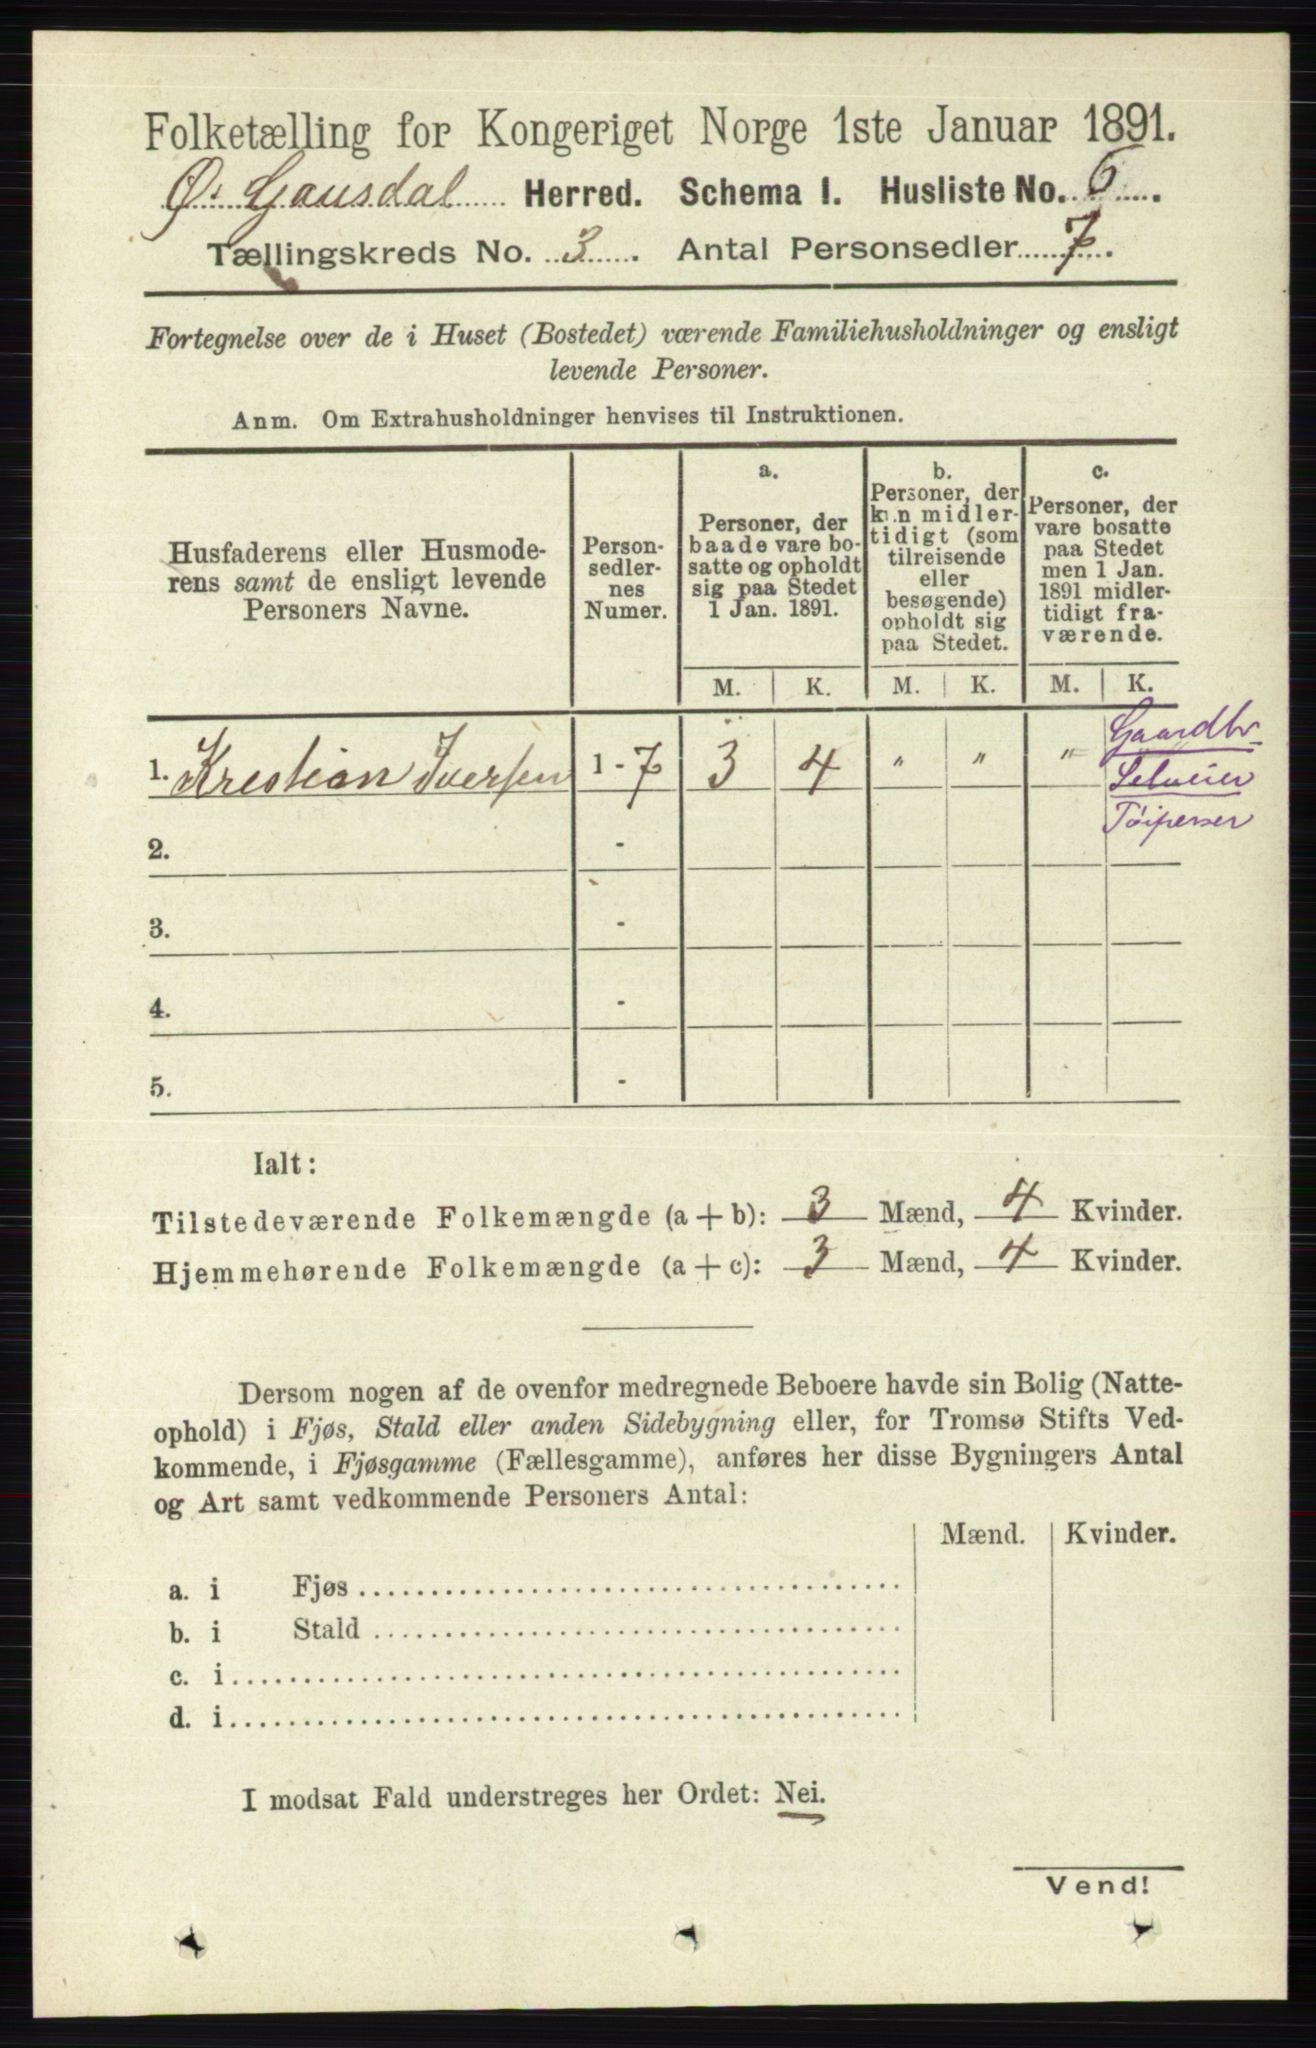 Folketælling for Kongeriget Norge 1ste Januar 1891.
Ø. Gausdal Herred. Schema I. Husliste No. 6.
Tællingskreds No. 3. Antal Personsedler 7.
Fortegnelse over de i Huset (Bostedet) værende Familiehusholdninger og ensligt
levende Personer.
Anm. Om Extrahusholdninger henvises til Instruktionen.
Husfaderens eller Husmode-
rens samt de ensligt levende
Personers Navne.
Person-
sedler-
nes
Numer.
a.
Personer, der
baade vare bo-
satte og opholdt
sig paa Stedet
1 Jan. 1891.
b.
Personer, der
kun midler-
tidigt (som
tilreisende
eller
besøgende)
opholdt sig
paa Stedet.
c.
Personer, der
vare bosatte
paa Stedet
men 1 Jan.
1891 midler-
tidigt fra-
værende.
M. K. M. K. M. K.
1. Krestian Iversen 1 - 7 3 4 " " "
Gaardbr
Selveier
2. -
3. -
4. -
5. -
Ialt:
Tilstedeværende Folkemængde (a + b): 3 Mænd, 4 Kvinder.
Hjemmehørende Folkemængde (a + c): 3 Mænd, 4 Kvinder.
Dersom nogen af de ovenfor medregnede Beboere havde sin Bolig (Natte-
ophold) i Fjøs, Stald eller anden Sidebygning eller, for Tromsø Stifts Ved-
kommende, i Fjøsgamme (Fællesgamme), anføres her disse Bygningers Antal
og Art samt vedkommende Personers Antal:
Mænd. Kvinder.
a. i Fjøs
b. i Stald
c. i
d. i
I modsat Fald understreges her Ordet: Nei.
Vend!